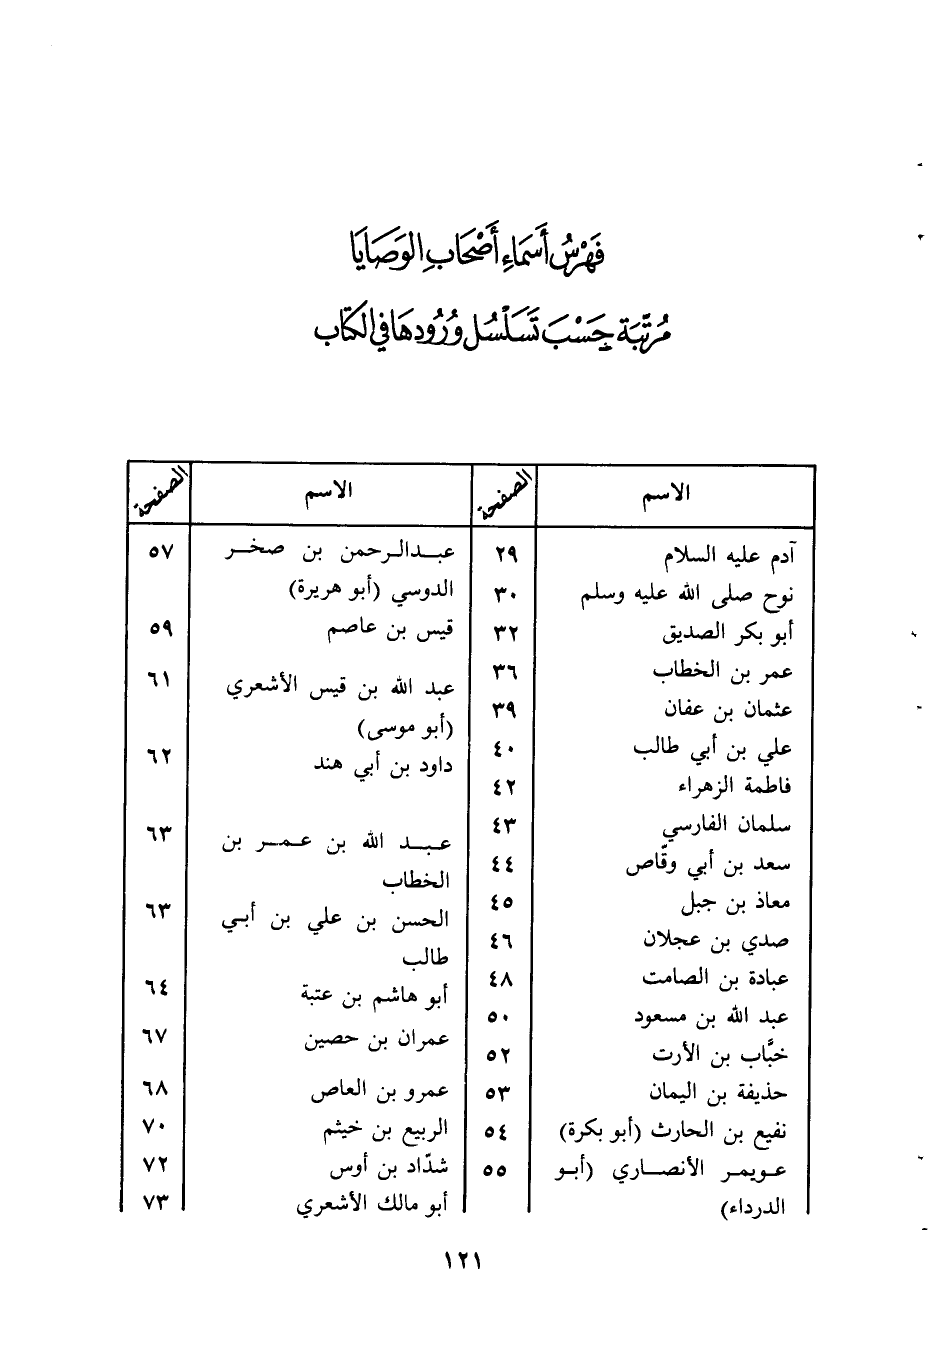 فَهْرسُ أَسمَاءِ أَصْحَابِ الوَصَايَا
مُرتَّبَة حَسْبَ تَسَلْسُل وُرُودهَا في الكتَاب
الاسم الصفحة
آدم عليه السلام ٢٩
نوح صلى الله عليه وسلم ٣٠
أبو بكر الصديق ٣٢
عمر بن الخطاب ٣٦
عثمان بن عفان ٣٩
علي بن أبي طالب ٤٠
فاطمة الزهراء ٤٢
سلمان الفارسي ٤٣
سعد بن أبي وقّاص ٤٤
معاذ بن جبل ٤٥
صدي بن عجلان ٤٦
عبادة بن الصامت ٤٨
عبد الله بن مسعود ٥٠
خبَّاب بن الأرت ٥٢
حذيفة بن اليمان ٥٣
نفيع بن الحارث (أبو بكرة) ٥٤
عويمر الأنصاري (أبو ٥٥
الدرداء)
الاسم الصفحة
عبدالرحمن بن صخر ٥٧
الدوسي (أبو هريرة)
قيس بن عاصم ٥٩
عبد الله بن قيس الأشعري ٦١
(أبو موسى)
داود بن أبي هند ٦٢
عبد الله بن عمر بن ٦٣
الخطاب
الحسن بن علي بن أبي ٦٣
طالب
أبو هاشم بن عتبة ٦٤
عمران بن حصين ٦٧
عمرو بن العاص ٦٨
الربيع بن خيثم ٧٠
شدّاد بن أوس ٧٢
أبو مالك الأشعري ٧٣
١٢١